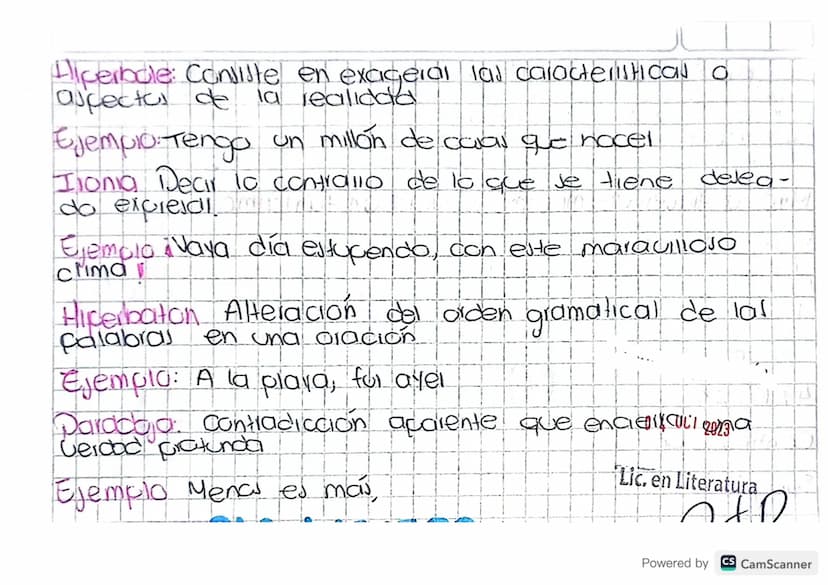 Hiperbole: Consiste en exagerar las características o
aspectos de la realidad
Ejemplo: Tengo un millón de cosas que hacer
Ironia Decir lo contrario de lo que se tiene desea-
do expresar.
Ejemplo ¡Vaya día estupendo, con este maravilloso
clima!
Hiperbaton Alteración del orden gramatical de las
palabras en una oración
Ejemplo: A la playa, fui ayer
Paradoja: Contradicción aparente que encierra una
verdad profunda
2023
Ejemplo Menos es más,
Lic. en Literatura
Powered by CS CamScanner